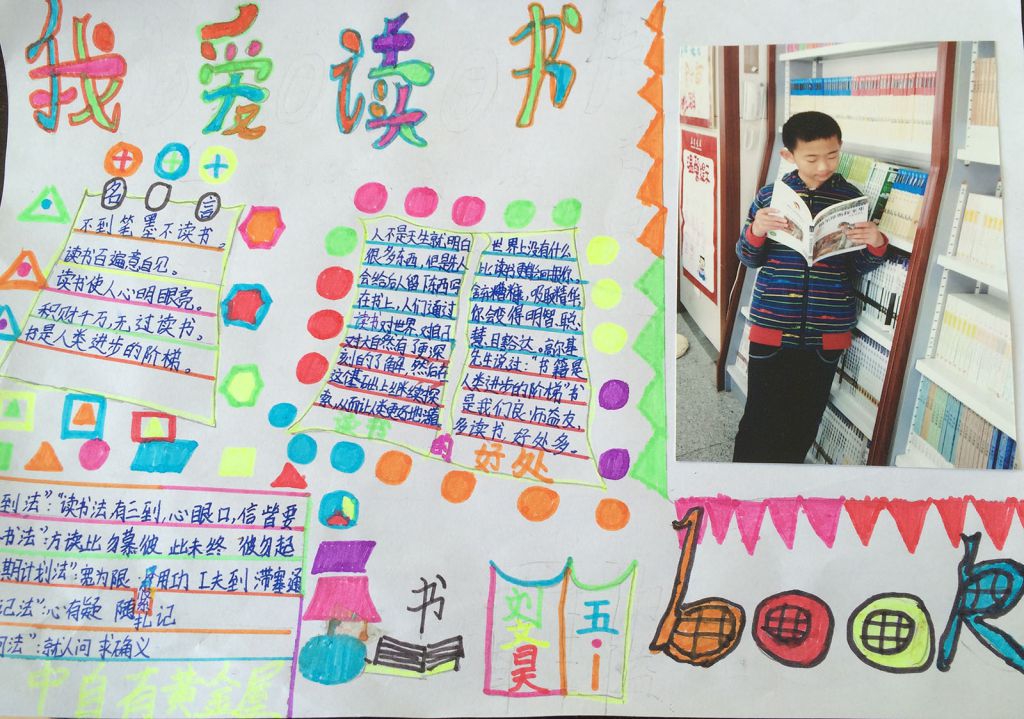 我爱读书
名言
不到笔墨不读书。
读书百遍意自见。
读书使人心明眼亮。
积财千万,无过读书。
书是人类进步的阶梯。
人不是天生就明白
很多东西,但是先人
会给后人留下东西写
在书上,人们通过
读书对世界,对自己
对大自然有了更深
刻的了解,然后在
这基础上继续探
索,从而让人类更好地
世界上没有什么
比读书更能
糟糠,吸取精华
你会变得明智,聪
慧,目豁达。高尔基
先生说过:“书籍是
人类进步的阶梯”书
是我们良师益友,
多读书,好处多。
读书的好处
到法”:“读书法有三到,心眼口,信皆要
书法”:方读此勿慕彼 此未终 彼勿起
期计划法”:宽为限 用功 工夫到 滞塞通
记法”:心有疑 随札记
问法”:就人问 求确义
中自有黄金屋
书
刘艾昊
五
book
温馨提示